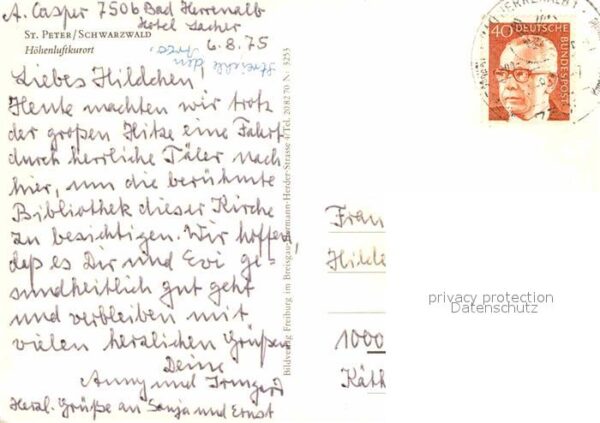 A. Casper 7506 Bad Herrenalb
Hotel Lacher
ST. PETER / SCHWARZWALD
Höhenluftkurort
6.8.75
Liebes Hildchen!
Heute machten wir trotz
der großen Hitze eine Fahrt
durch herrliche Täler nach
hier, um die berühmte
Bibliothek dieser Kirche
zu besichtigen. Wir hoffen,
daß es Dir und Evi ge-
sundheitlich gut geht
und verbleiben mit
vielen herzlichen Grüßen
Deine
Anny und Irmgard
Herzl. Grüße an Sonja und Ernst
Bildverlag Freiburg im Breisgau Hermann-Herder-Strasse 4 Tel. 208270 Nr. 3253
40 DEUTSCHE
BUNDESPOST
Frau
Hilde
1000
Käth
privacy protection
Datenschutz